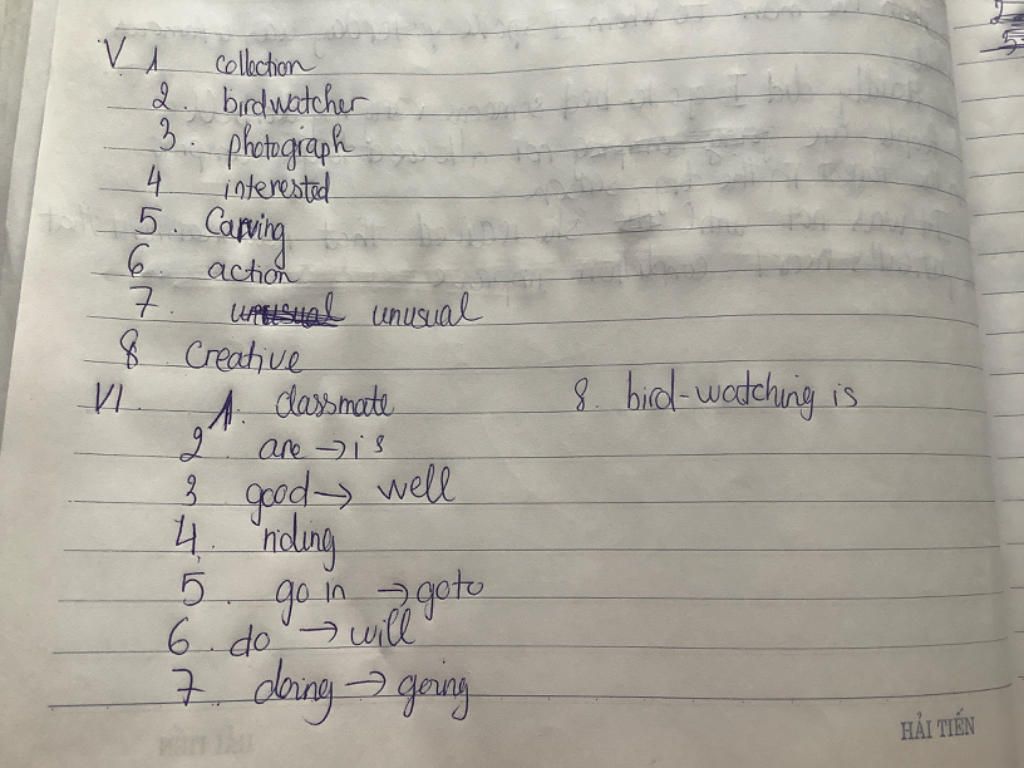 V 1 collection
2. birdwatcher
3. photograph
4 interested
5. Carving
6. action
7. unusual unusual
8 Creative
VI. 1. classmate 8. bird-watching is
2 are → is
3 good → well
4. riding
5. go in → go to
6. do → will
7 doing → going
HẢI TIẾN